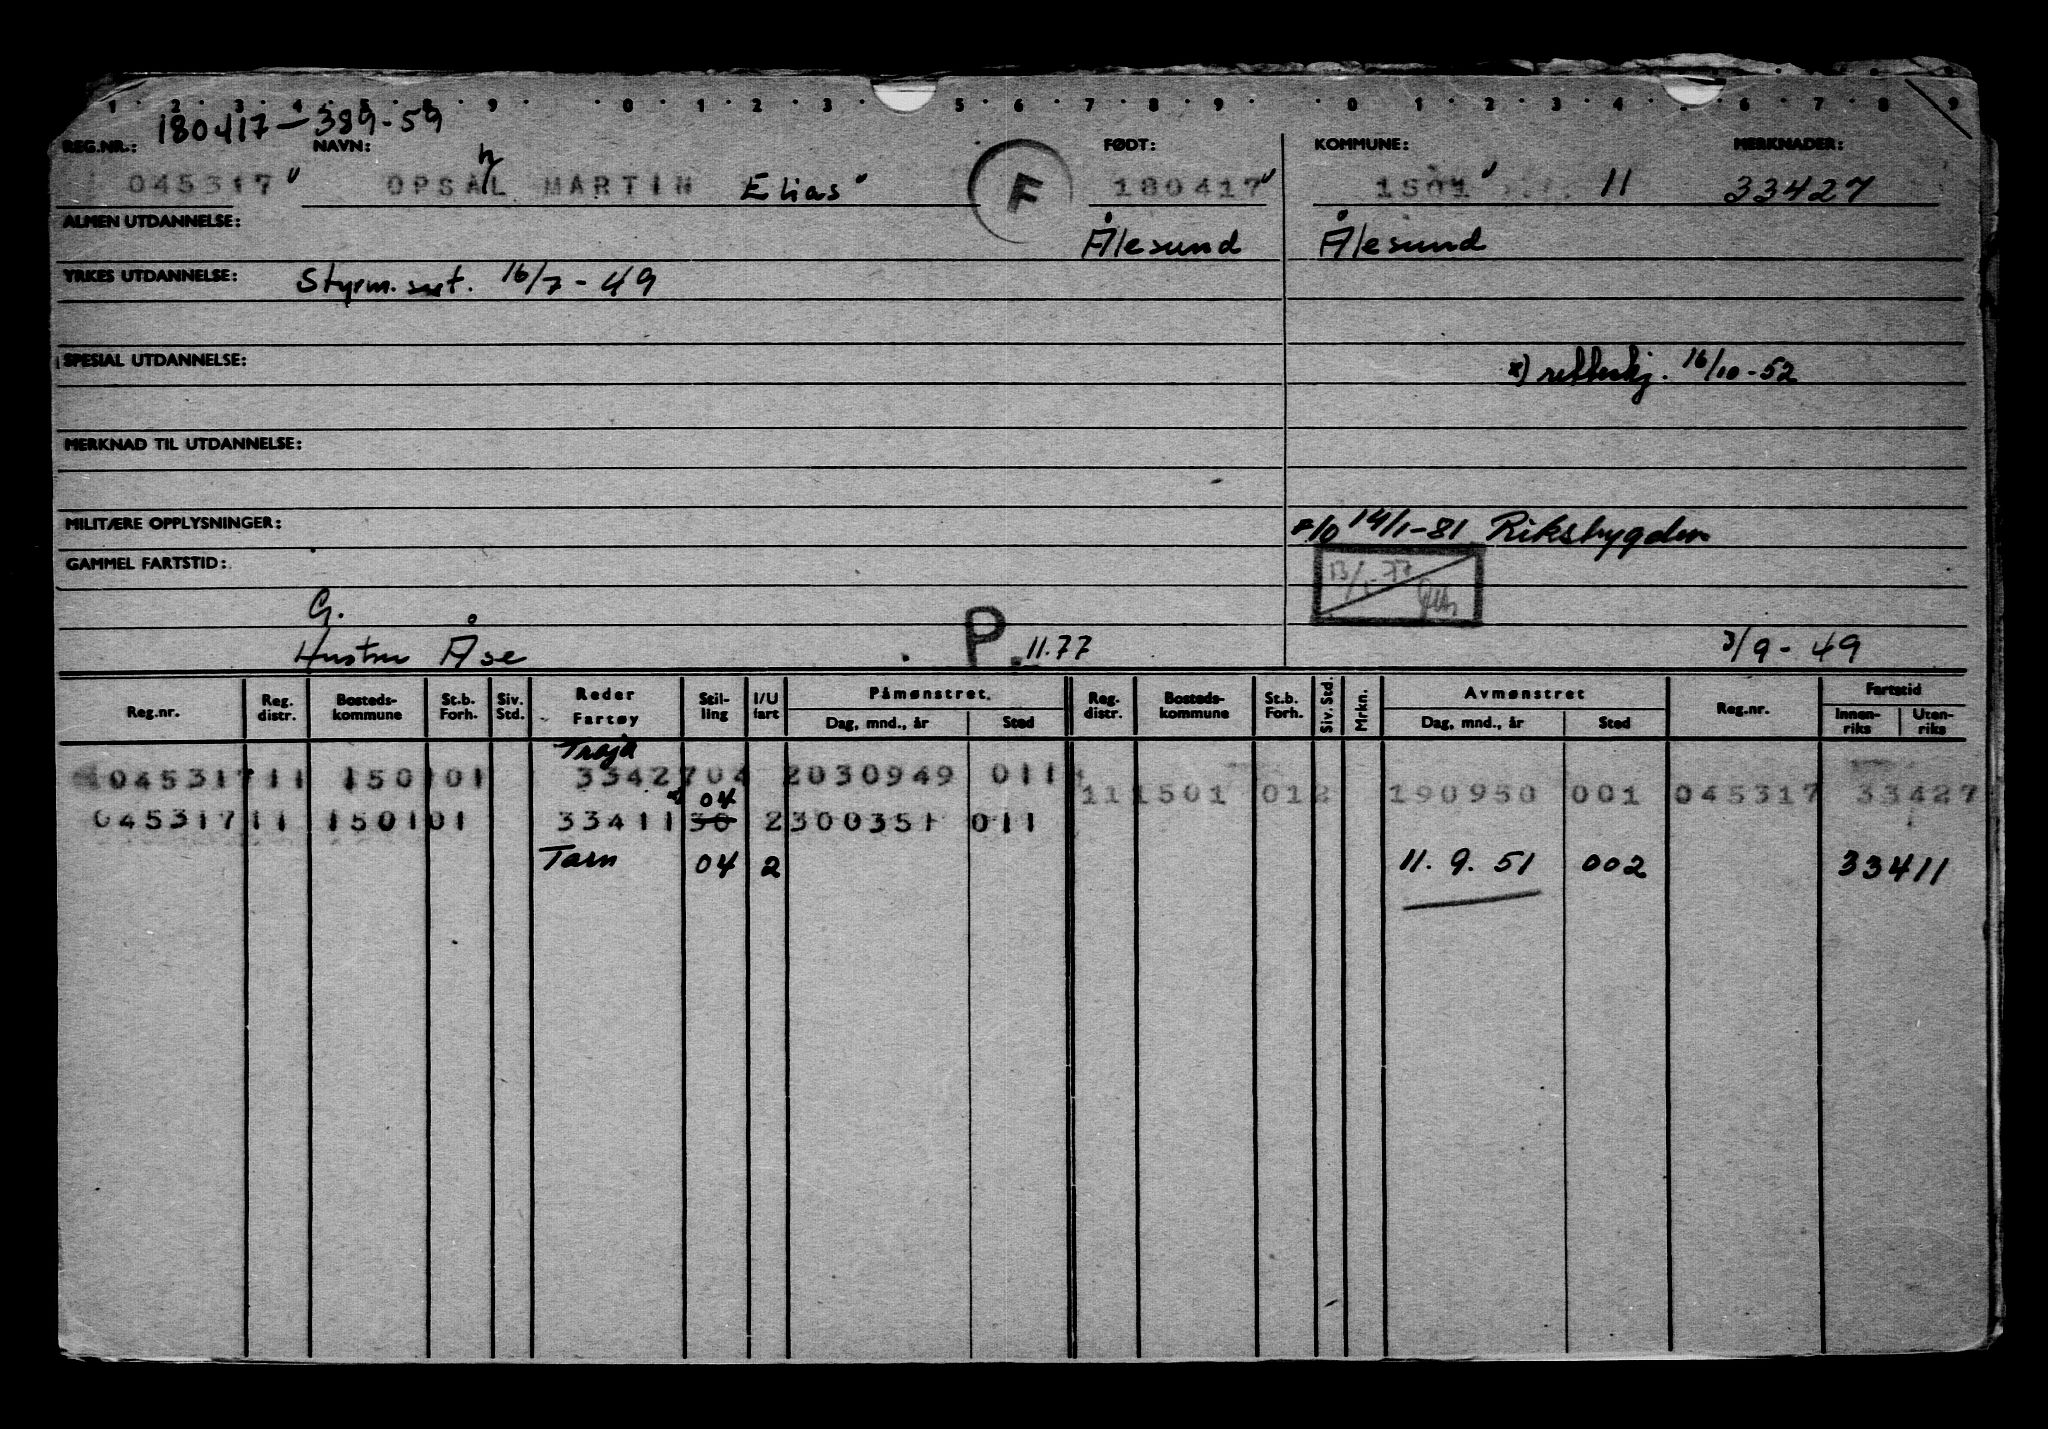 1 2 3 4 5 8 9 0 1 2 3 5 6 7 8 9 0 1 2 3 4 6 7 8 9
180417-389-59
REG.NR.: NAVN: FØDT: KOMMUNE: MERKNADER:
045317 OPSAHL MARTIN Elias F 180417 1501 11 33427
ALMEN UTDANNELSE: Ålesund Ålesund
YRKES UTDANNELSE: Styrm. sert. 16/7-49
SPESIAL UTDANNELSE: x) 16/10-52
MERKNAD TIL UTDANNELSE:
MILITÆRE OPPLYSNINGER: 14/1-81 Riksbygden
GAMMEL FARTSTID:
G.
Hustru Åse P. 11.77 3/9-49
Reg.nr. Reg. distr. Bosteds-kommune St.b. Forh. Siv. Std. Reder Fartøy Stil-ling I/U fart Påmønstret. Dag, mnd., år Sted Reg. distr. Bosteds-kommune St.b. Forh. Siv. Std. Mrkn. Avmønstret Dag, mnd., år Sted Reg.nr. Fartstid Innen-riks Uten-riks
Troja
045317 11 1501 01 33427 04 2 030949 011 11 1501 012 190950 001 045317 33427
x) 04
045317 11 1501 01 33411 30 2 300351 011
Tarn 04 2 11.9.51 002 33411